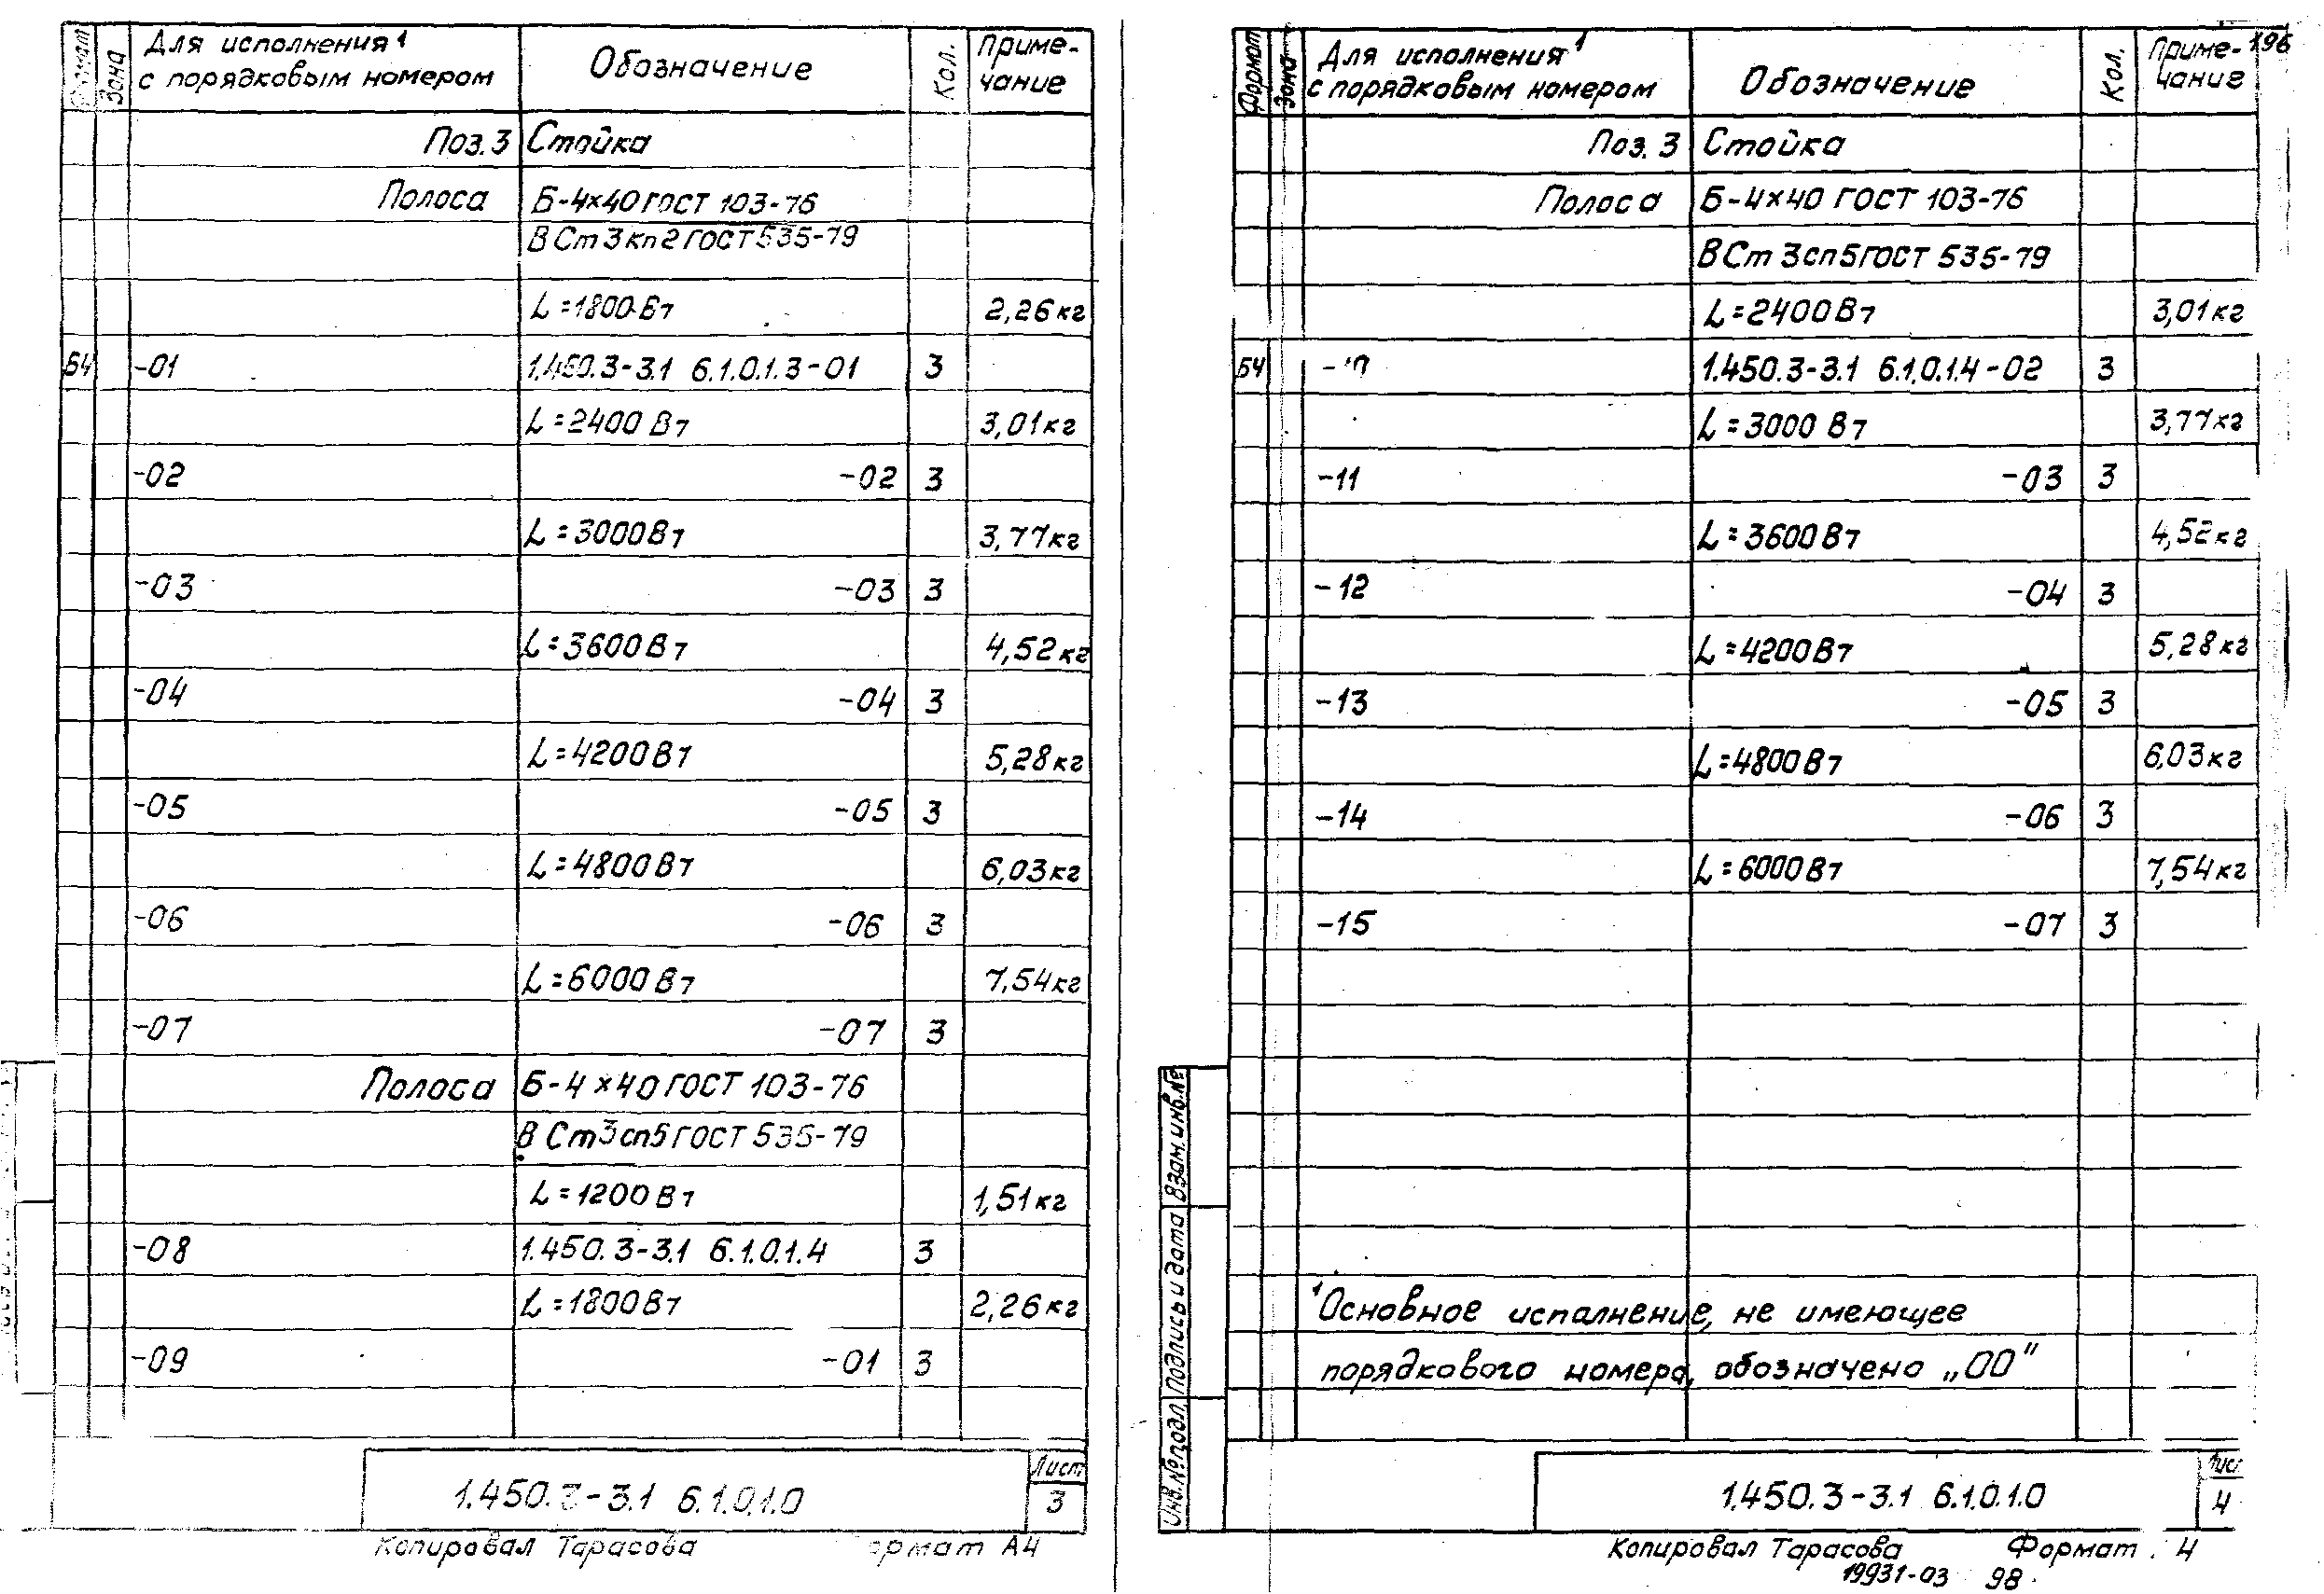 Формат
Зона
Для исполнения¹
с порядковым номером
Обозначение
Кол.
Приме-
чание
Поз. 3 Стойка
Полоса Б-4×40 ГОСТ 103-76
ВСт3кп2 ГОСТ 535-79
L=1800Вт 2,26кг
БЧ -01 1.450.3-3.1 6.1.0.1.3-01 3
L=2400Вт 3,01кг
-02 -02 3
L=3000Вт 3,77кг
-03 -03 3
L=3600Вт 4,52кг
-04 -04 3
L=4200Вт 5,28кг
-05 -05 3
L=4800Вт 6,03кг
-06 -06 3
L=6000Вт 7,54кг
-07 -07 3
Полоса Б-4×40 ГОСТ 103-76
ВСт3сп5 ГОСТ 535-79
L=1200Вт 1,51кг
-08 1.450.3-3.1 6.1.0.1.4 3
L=1800Вт 2,26кг
-09 -01 3
1.450.3-3.1 6.1.0.1.0
Лист
3
Копировал Тарасова ормат А4
196
Формат
Зона
Для исполнения¹
с порядковым номером
Обозначение
Кол.
Приме-
чание
Поз. 3 Стойка
Полоса Б-4×40 ГОСТ 103-76
ВСт3сп5 ГОСТ 535-79
L=2400Вт 3,01кг
БЧ 1.450.3-3.1 6.1.0.1.4-02 3
L=3000Вт 3,77кг
-11 -03 3
L=3600Вт 4,52кг
-12 -04 3
L=4200Вт 5,28кг
-13 -05 3
L=4800Вт 6,03кг
-14 -06 3
L=6000Вт 7,54кг
-15 -07 3
¹Основное испалнение, не имеющее
порядкового номера, обозначено „00"
Инв.№подл. Подпись и дата Взам.инв.№
1.450.3-3.1 6.1.0.1.0
4
Копировал Тарасова Формат 4
19931-03 98